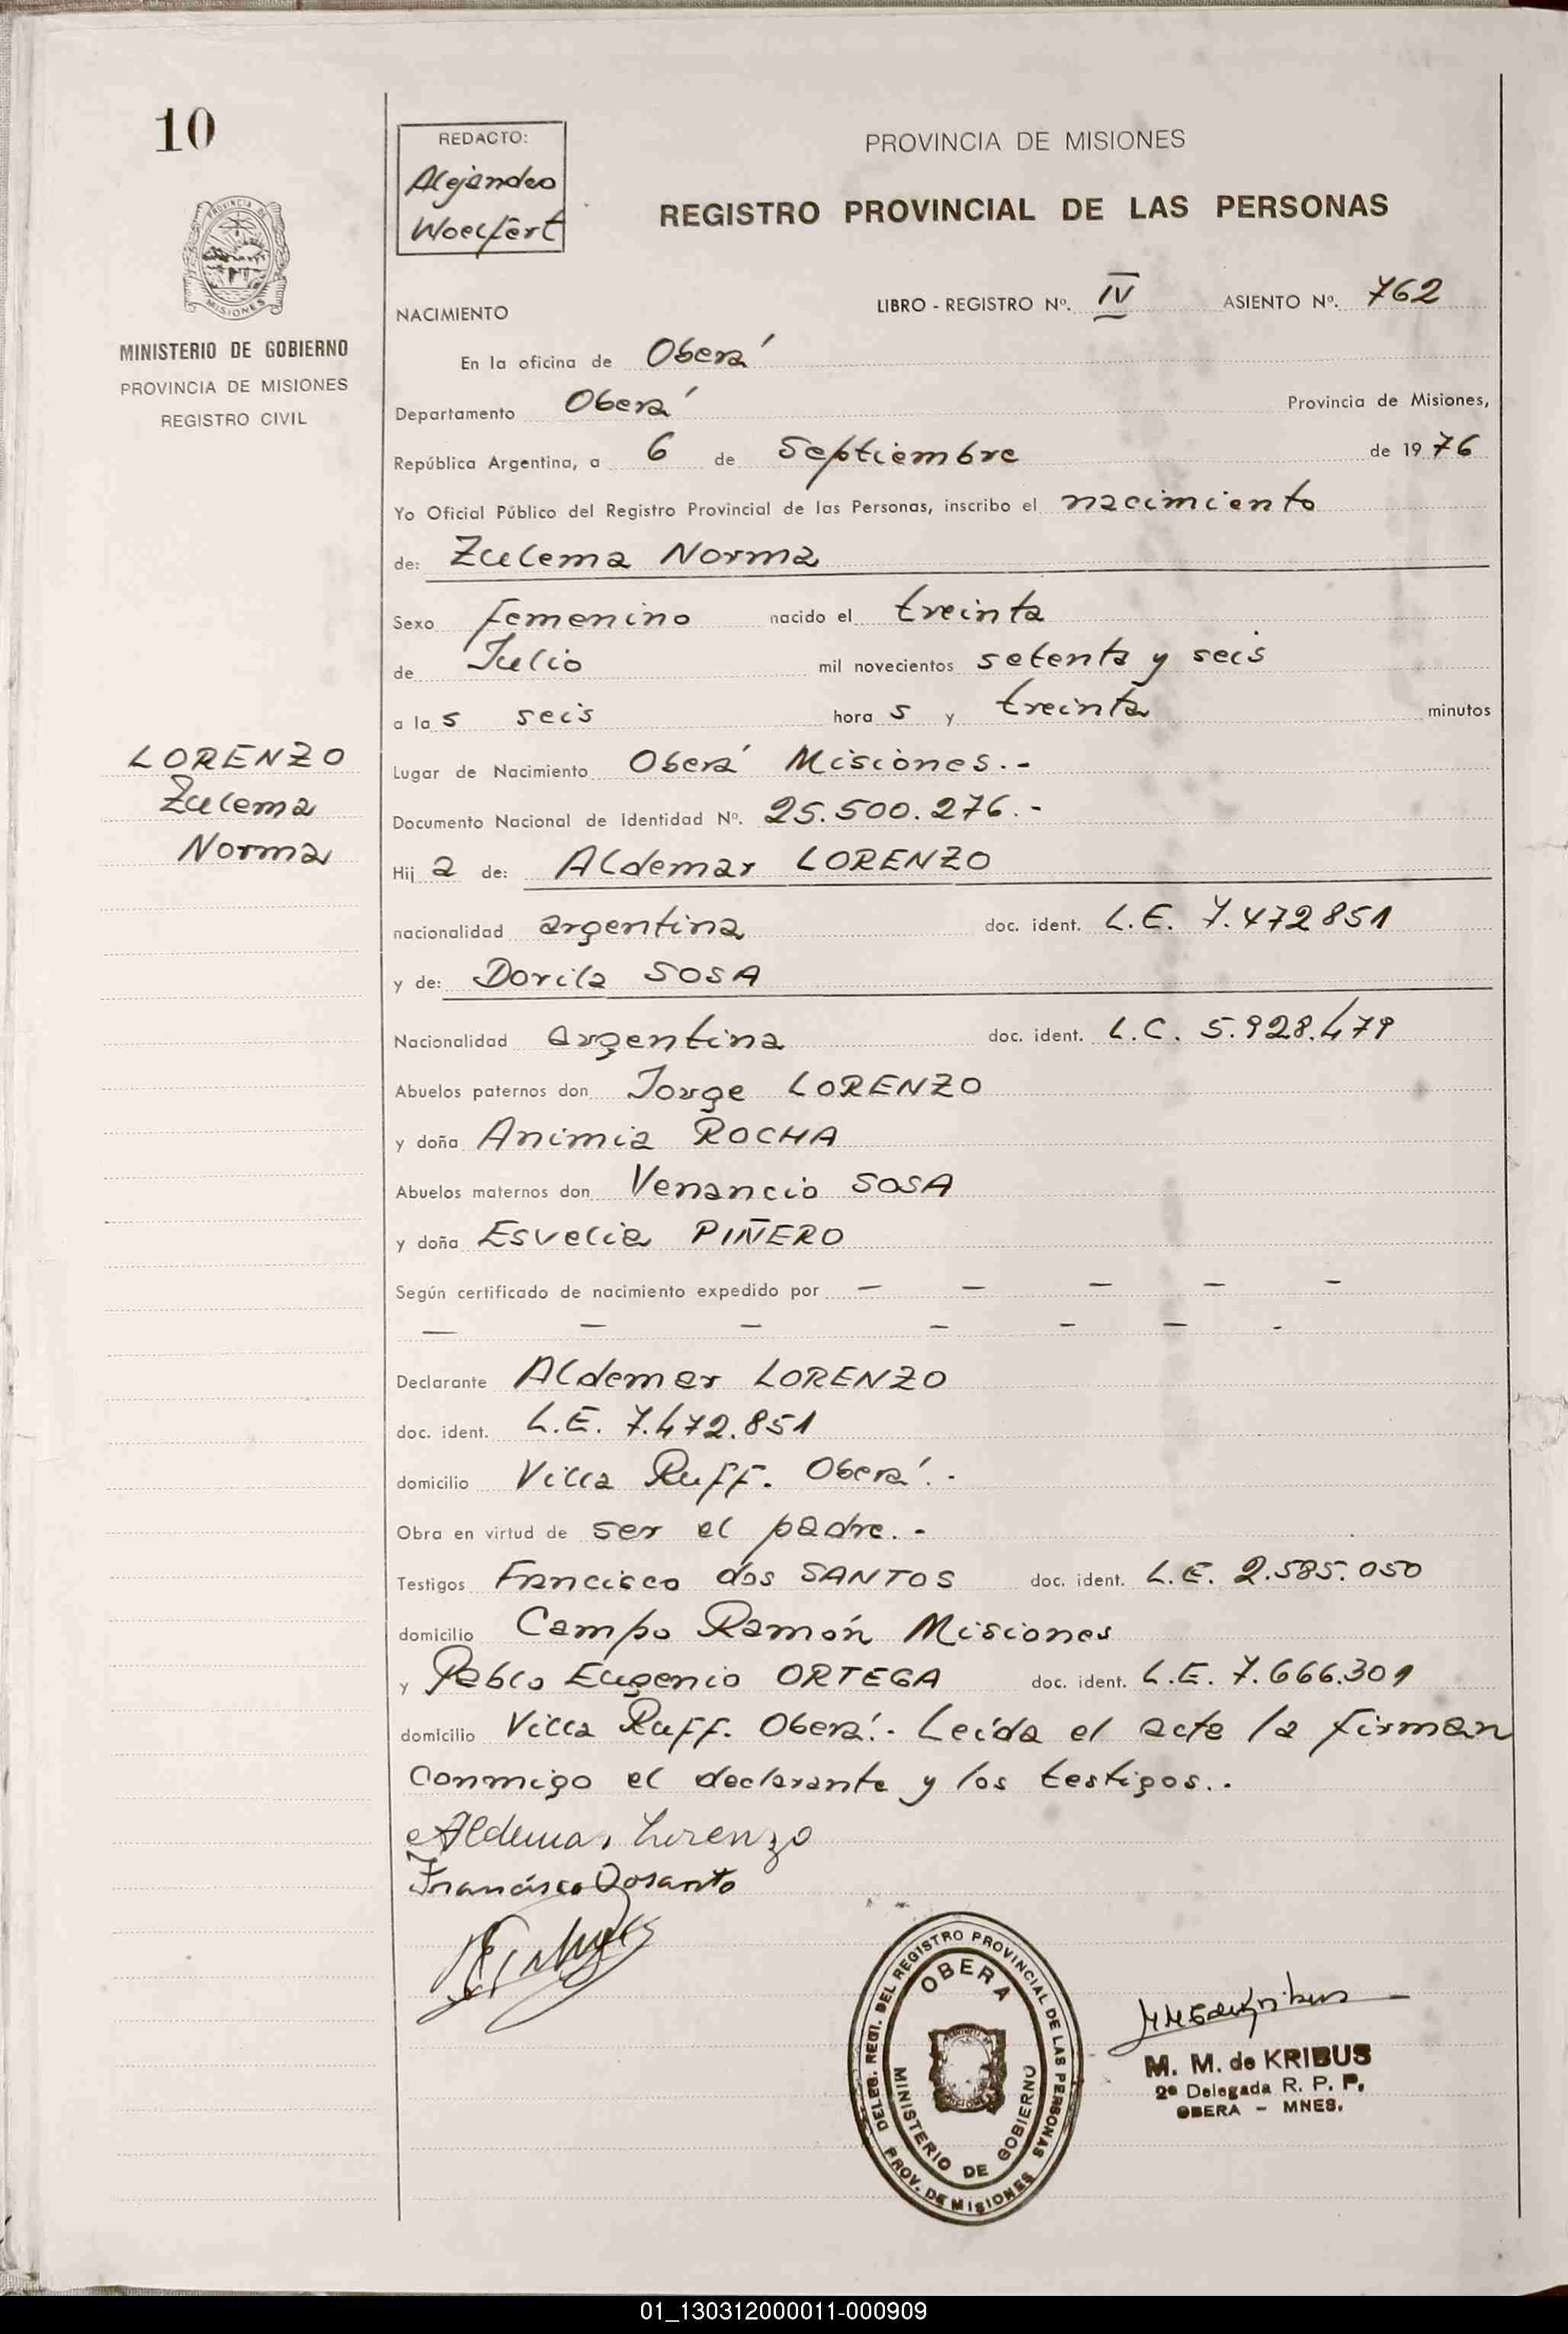 10
PROVINCIA DE
MISIONES
MINISTERIO DE GOBIERNO
PROVINCIA DE MISIONES
REGISTRO CIVIL
LORENZO
Zulema
Norma
REDACTO:
Alejandro
Woelfert
PROVINCIA DE MISIONES
REGISTRO PROVINCIAL DE LAS PERSONAS
NACIMIENTO LIBRO - REGISTRO Nº. IV ASIENTO Nº. 762
En la oficina de Oberá
Departamento Oberá Provincia de Misiones,
República Argentina, a 6 de Septiembre de 1976
Yo Oficial Público del Registro Provincial de las Personas, inscribo el nacimiento
de: Zulema Norma
Sexo femenino nacido el treinta
de Julio mil novecientos setenta y seis
a las seis horas y treinta minutos
Lugar de Nacimiento Oberá Misiones.-
Documento Nacional de Identidad Nº. 25.500.276.-
Hija de: Aldemar LORENZO
nacionalidad argentina doc. ident. L.E. 7.472851
y de: Dorila SOSA
Nacionalidad argentina doc. ident. L.C. 5.928.479
Abuelos paternos don Jorge LORENZO
y doña Animia ROCHA
Abuelos maternos don Venancio SOSA
y doña Esvelia PIÑERO
Según certificado de nacimiento expedido por — — — — —
— — — — — — -
Declarante Aldemar LORENZO
doc. ident. L.E. 7.472.851
domicilio Villa Ruff. Oberá.-
Obra en virtud de ser el padre.-
Testigos Francisco dos SANTOS doc. ident. L.E. 2.585.050
domicilio Campo Ramón Misiones
y Pablo Eugenio ORTEGA doc. ident. L.E. 7.666.301
domicilio Villa Ruff. Oberá.- Leída el acta la firman
conmigo el declarante y los testigos..
Aldemar Lorenzo
Francisco Dosanto
DELEG. REGI. DEL REGISTRO PROVINCIAL DE LAS PERSONAS
PROV. DE MISIONES
OBERA
MINISTERIO DE GOBIERNO
M. M. de KRIBUS
2ª Delegada R. P. P.
OBERA - MNES.
01_130312000011-000909